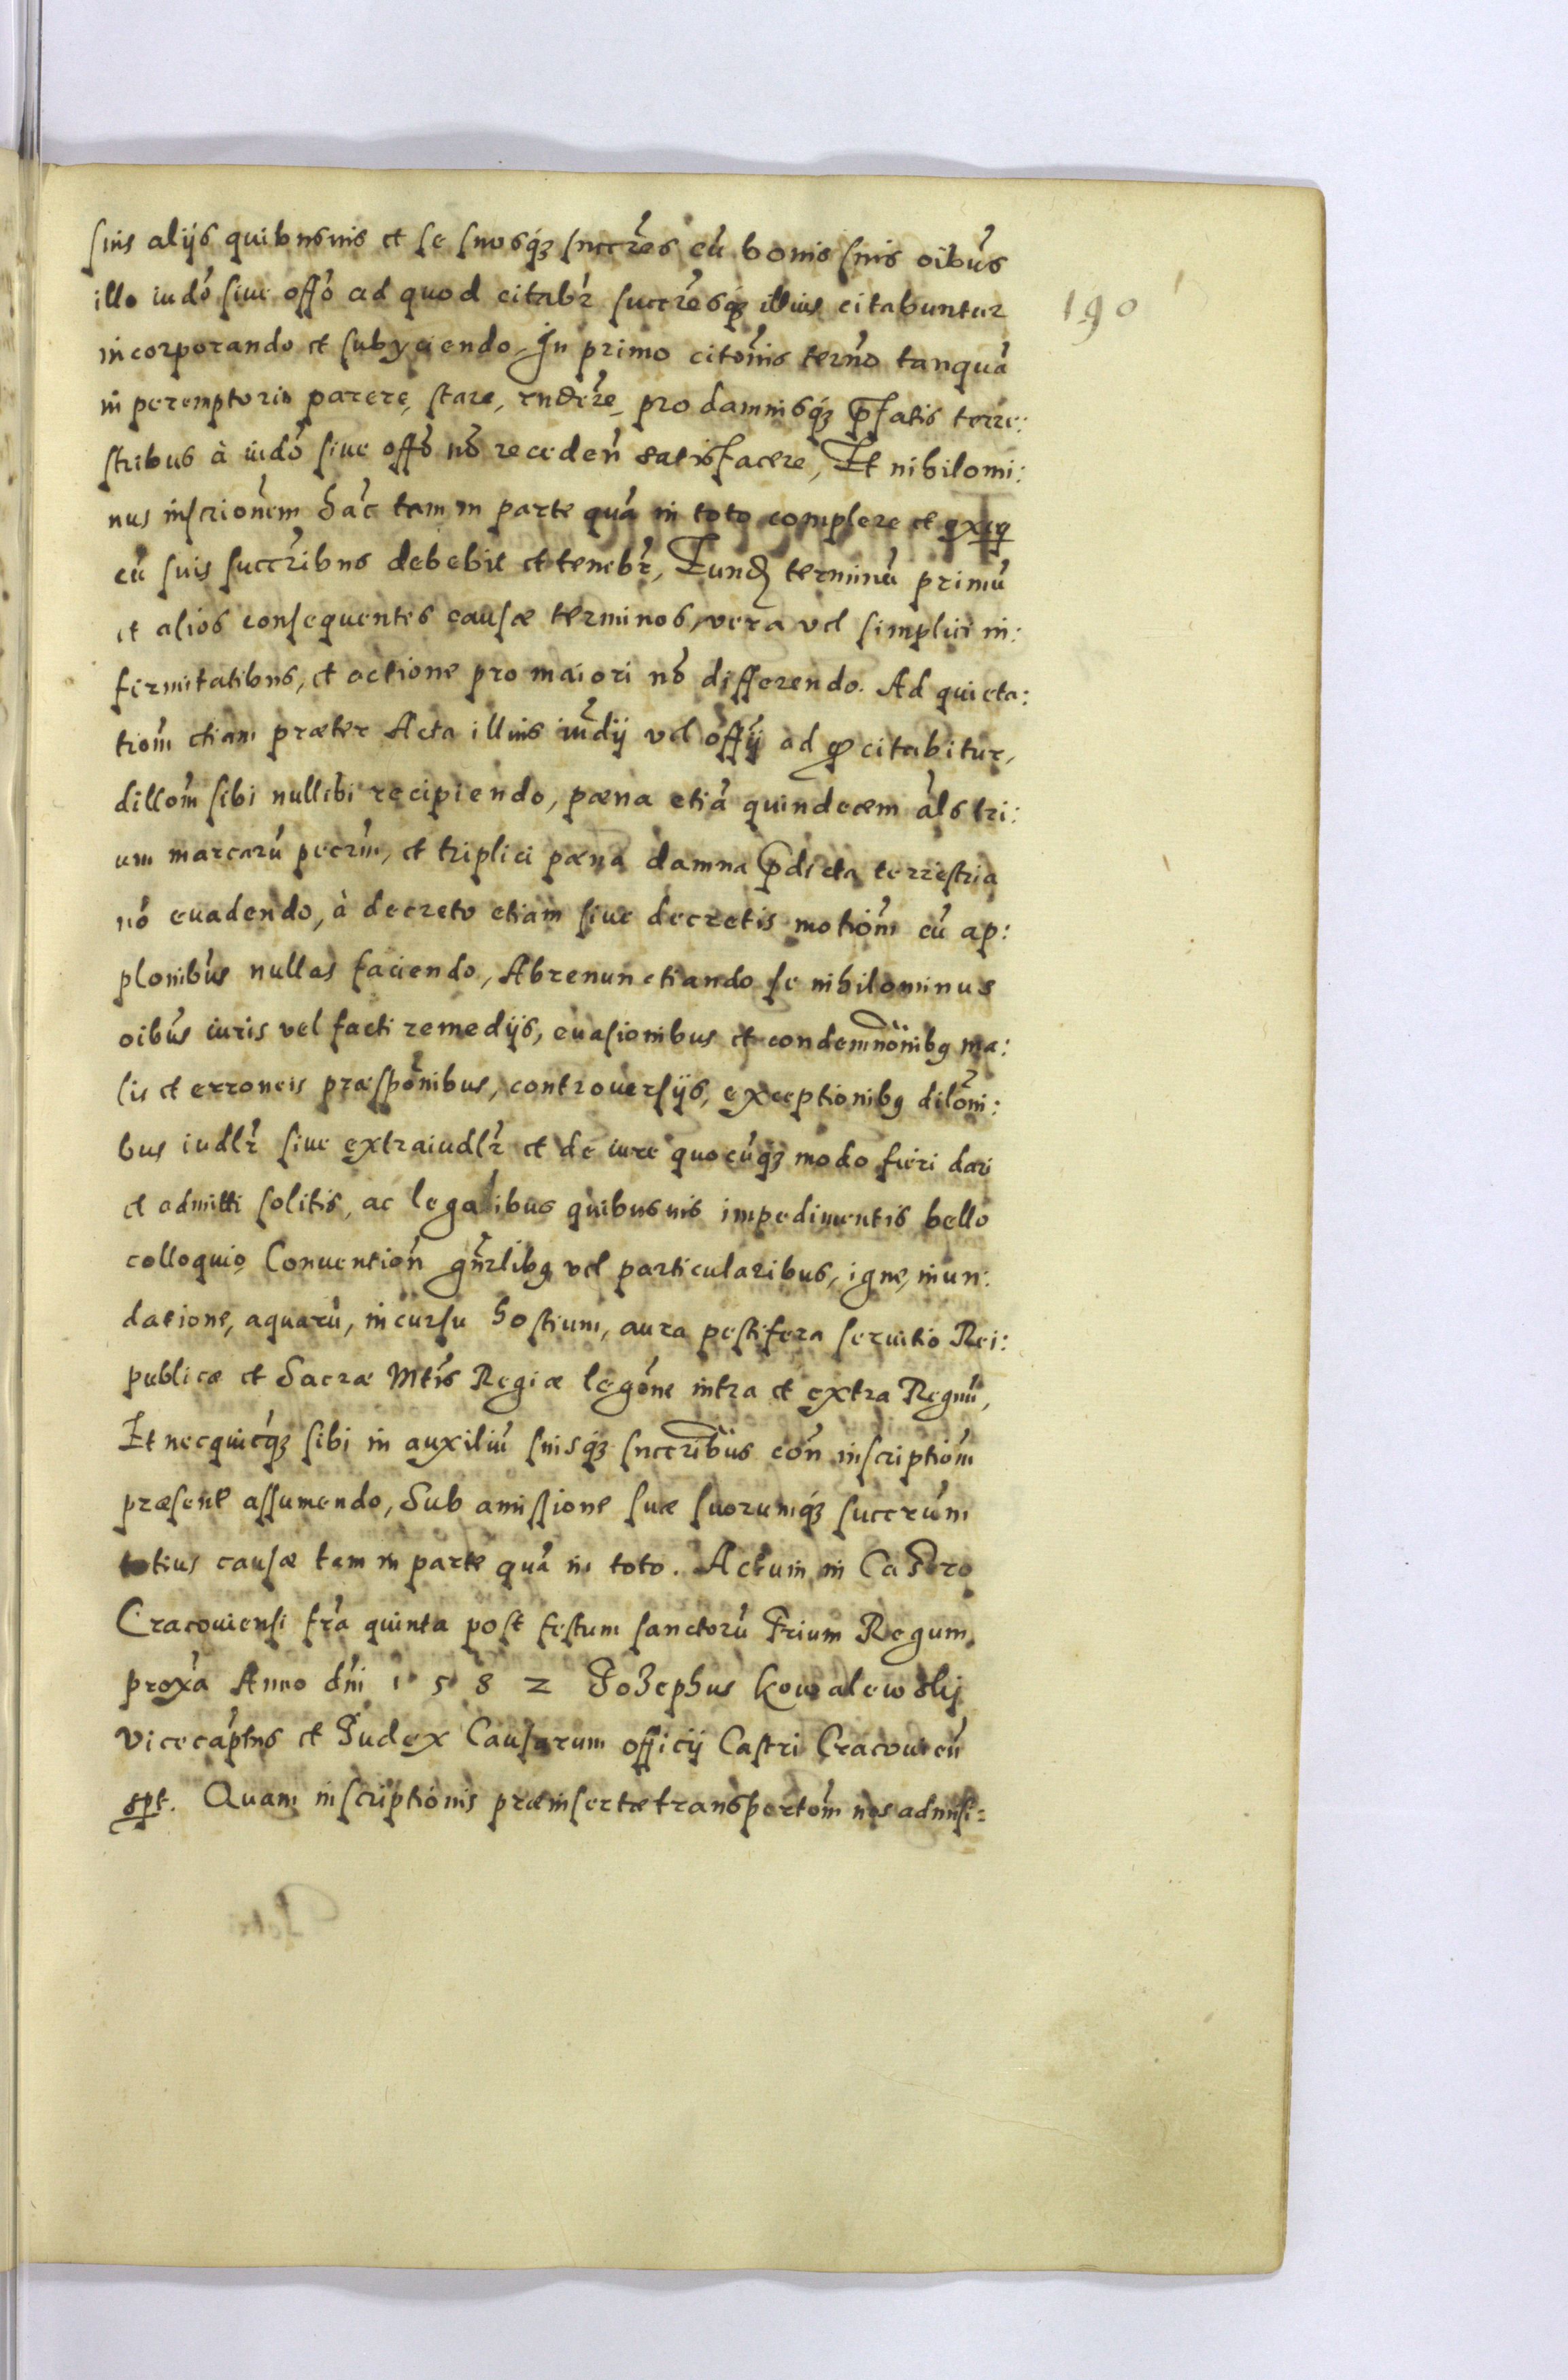 suis alijs quibusuis et se suosq succres cu bonis suis oibus
illo iudo siue offo ad quod citabr succresq illius citabuntur
190
incorporando et subyciendo, In primo citonis terno tanqua
in peremptorio parere, stare, rndere, pro damnisq pfatis terre:
stribus à iudo siue offo no receden satisfacere, Et nihilomi:
nus inscrionem hac tam in parte qua in toto complere et exeq
cu suis succribus debebit et tenebr, Tunq terminu primu
et alios consequentes causæ terminos, vera vel simplici in:
firmitatibus, et actione pro maiori no differendo. Ad quieta:
tiom etiam præter Acta illius iudij vel offij ad q citabitur,
dillom sibi nullibi recipiendo, pæna etia quindecem als tri:
um marcaru pecrm, et triplici pæna damna pdicta terrestria
no euadendo, à decreto etiam siue decretis motiom cu ap:
plonibus nullas faciendo, Abrenunctiando se nihilominus
oibus iuris vel facti remedijs, euasionibus et condemnonibg ma:
lis et erroneis præsponibus, controuersijs, exceptionibg diloni:
bus iudlr siue extraiudlr et de iure quocuq modo fieri dari
et admitti solitis, ac legalibus quibusuis impedimentis bello
colloquio Conuention gnrlibg vel particularibus, igne, inun:
datione, aquaru, incursu hostium, aura pestifera seruitio Rei:
publicæ et Sacræ Mtis Regiæ legone intra et extra Regnu,
Et necquicq sibi in auxiliu suisq succribus con inscriptiom
præsent assumendo, Sub amissione suæ suorumq succrum
totius causæ tam in parte qua in toto. Actum in Castro
Cracouiensi fra quinta post festum sanctoru Trium Regum
proxa Anno dni 1582 Josephus Kowalewskij
Vicecaptus et Judex Causarum officij Castri Cracouien
spt. Quam inscriptionis præinsertæ transportom nos admisi=